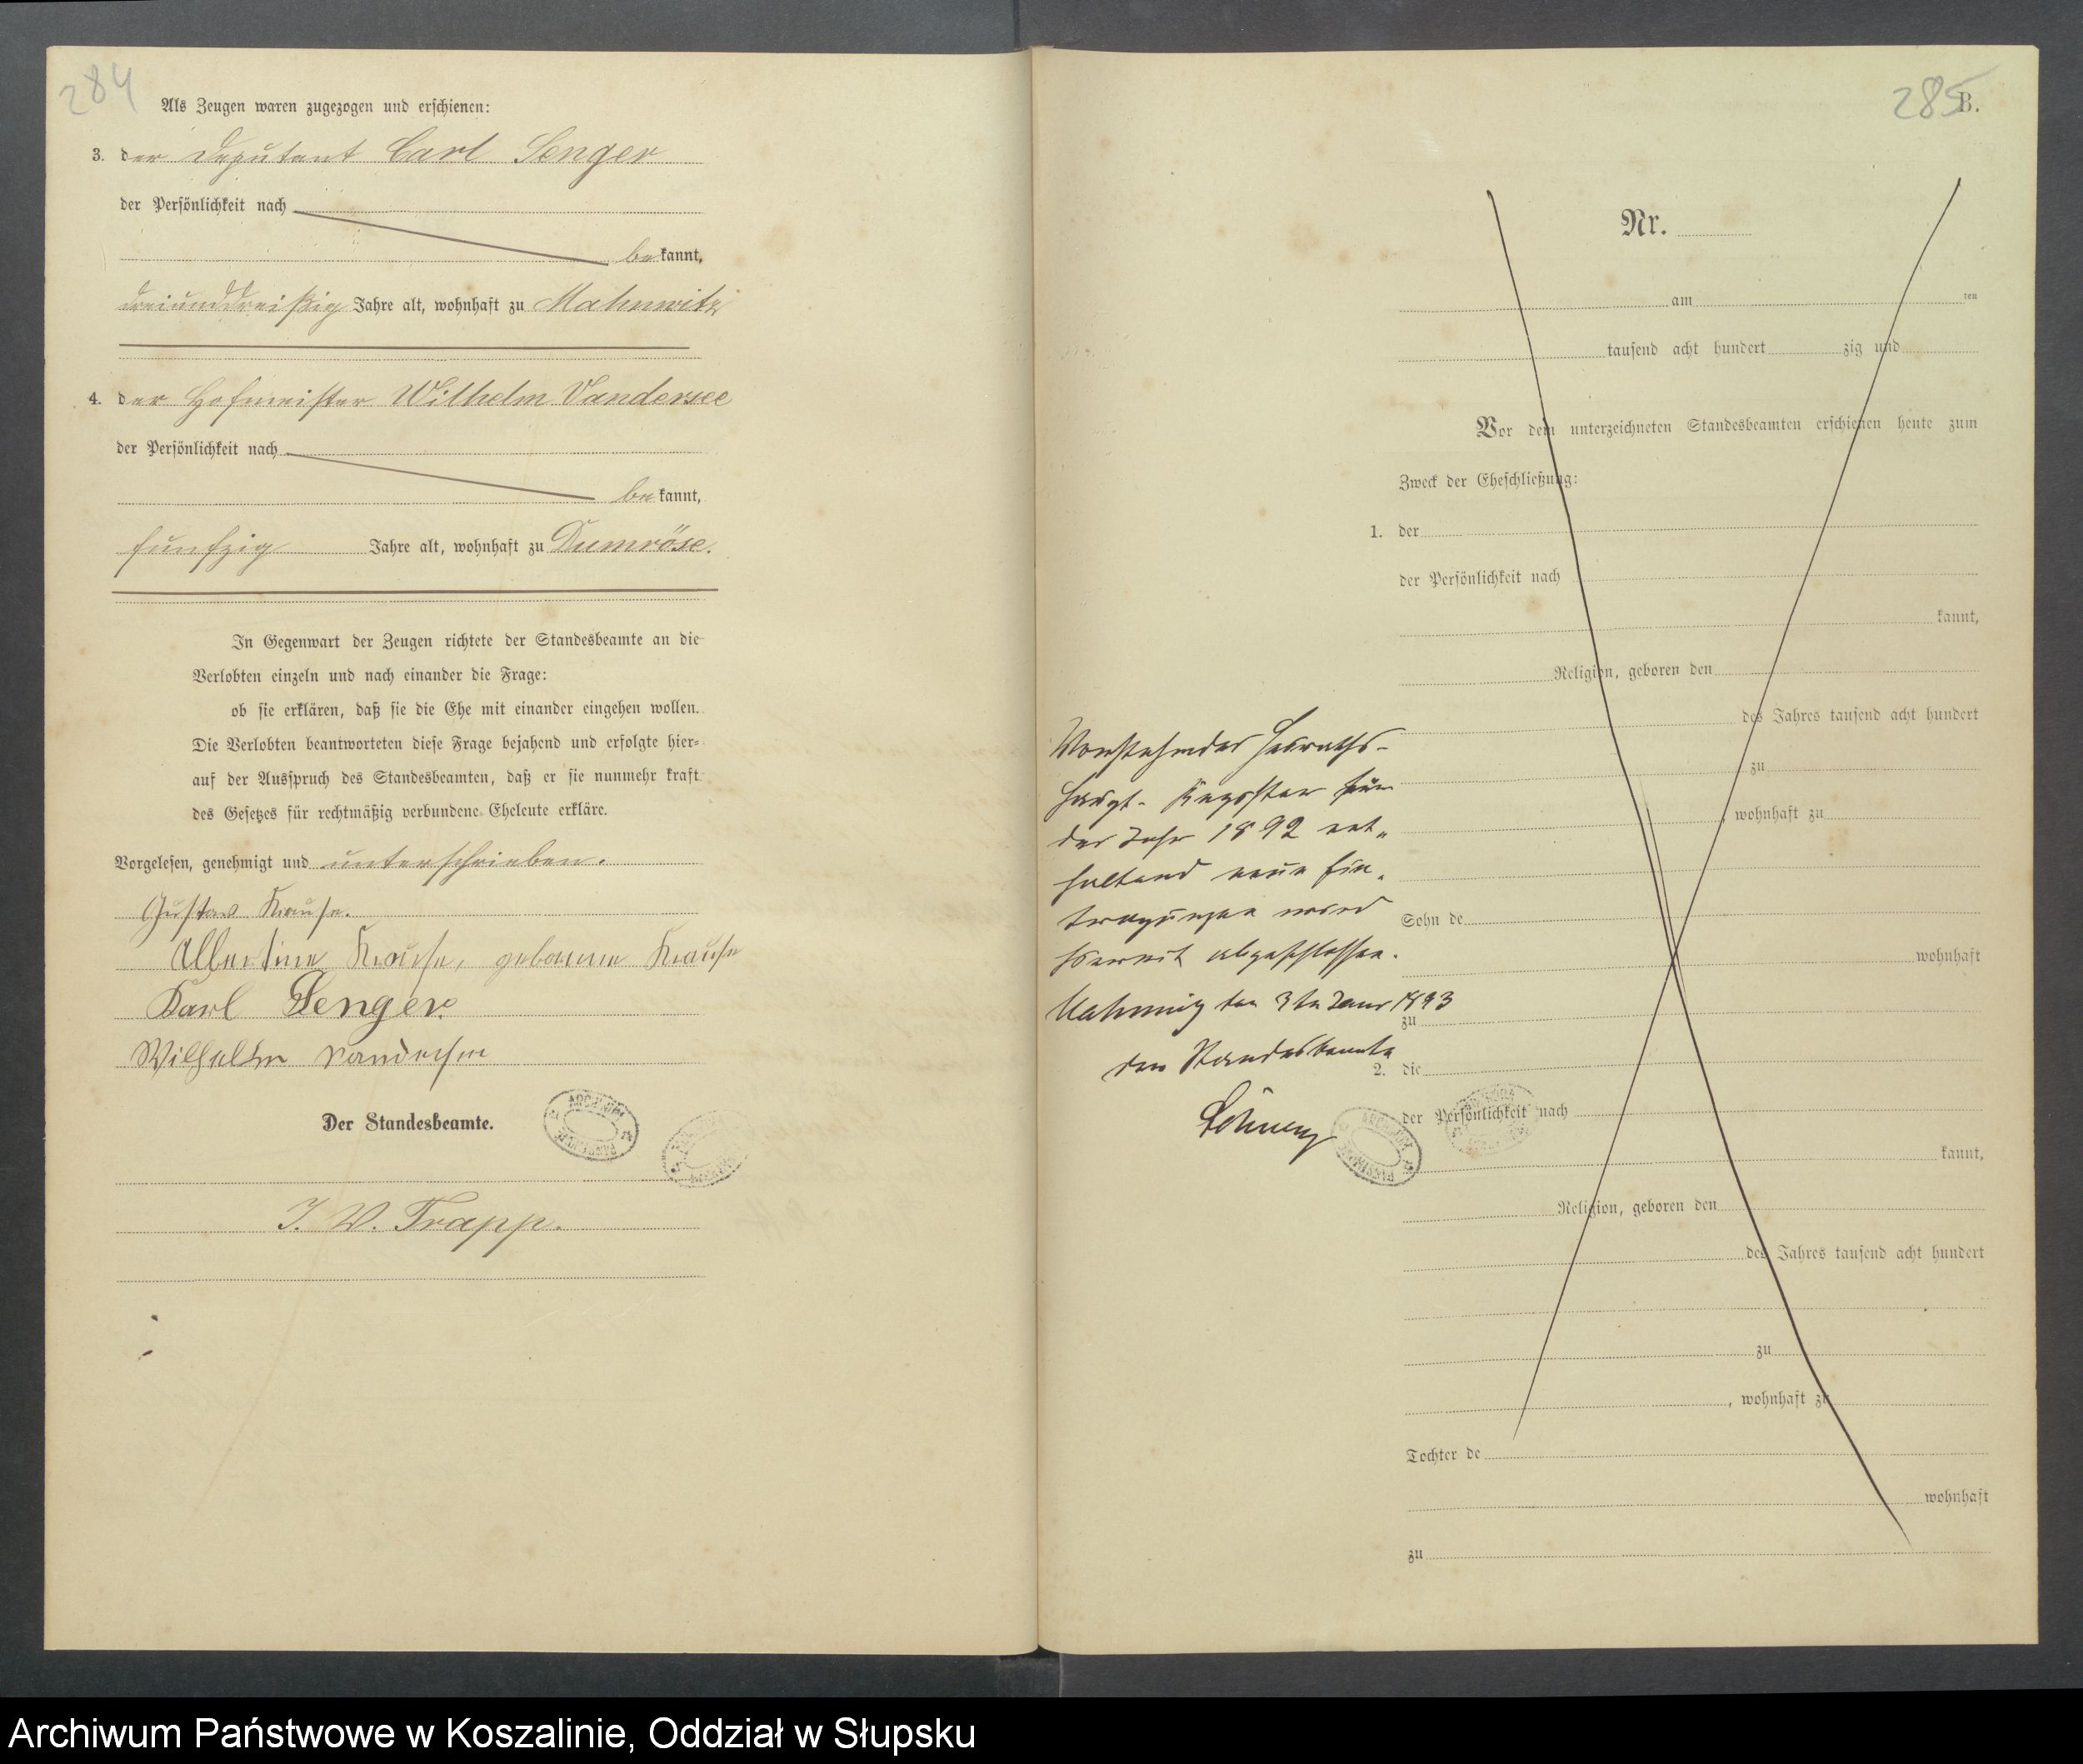 284
Als Zeugen waren zugezogen und erschienen:
3. der Deputant Carl Senger
der Persönlichkeit nach
be kannt,
dreiunddreißig Jahre alt, wohnhaft zu Mahnwitz
4. der Hofmeister Wilhelm Vandersee
der Persönlichkeit nach
be kannt,
funfzig Jahre alt, wohnhaft zu Dumröse.
In Gegenwart der Zeugen richtete der Standesbeamte an die
Verlobten einzeln und nach einander die Frage:
ob sie erklären, daß sie die Ehe mit einander eingehen wollen.
Die Verlobten beantworteten diese Frage bejahend und erfolgte hier-
auf der Ausspruch des Standesbeamten, daß er sie nunmehr kraft
des Gesetzes für rechtmäßig verbundene Eheleute erkläre.
Vorgelesen, genehmigt und unterschrieben.
Gustav Krause.
Albertine Krause, geborene Krause
Karl Senger
Wilhelm Vandersee
Der Standesbeamte.
J. V. Trapp.
285
B.
Nr.
am ten
tausend acht hundert zig und
Vor dem unterzeichneten Standesbeamten erschienen heute zum
Zweck der Eheschließung:
1. der
der Persönlichkeit nach
kannt,
Religion, geboren den
des Jahres tausend acht hundert
zu
, wohnhaft zu
Sohn de
wohnhaft
zu
2. die
der Persönlichkeit nach
kannt,
Religion, geboren den
des Jahres tausend acht hundert
zu
, wohnhaft zu
Tochter de
wohnhaft
zu
Vorstehendes Heiraths-
Haupt-Register für
das Jahr 1892 ent-
haltend neun Ein-
tragungen wird
hiermit abgeschlossen.
Mahnwitz den 3ten Januar 1893
der Standesbeamte
Archiwum Państwowe w Koszalinie, Oddział w Słupsku